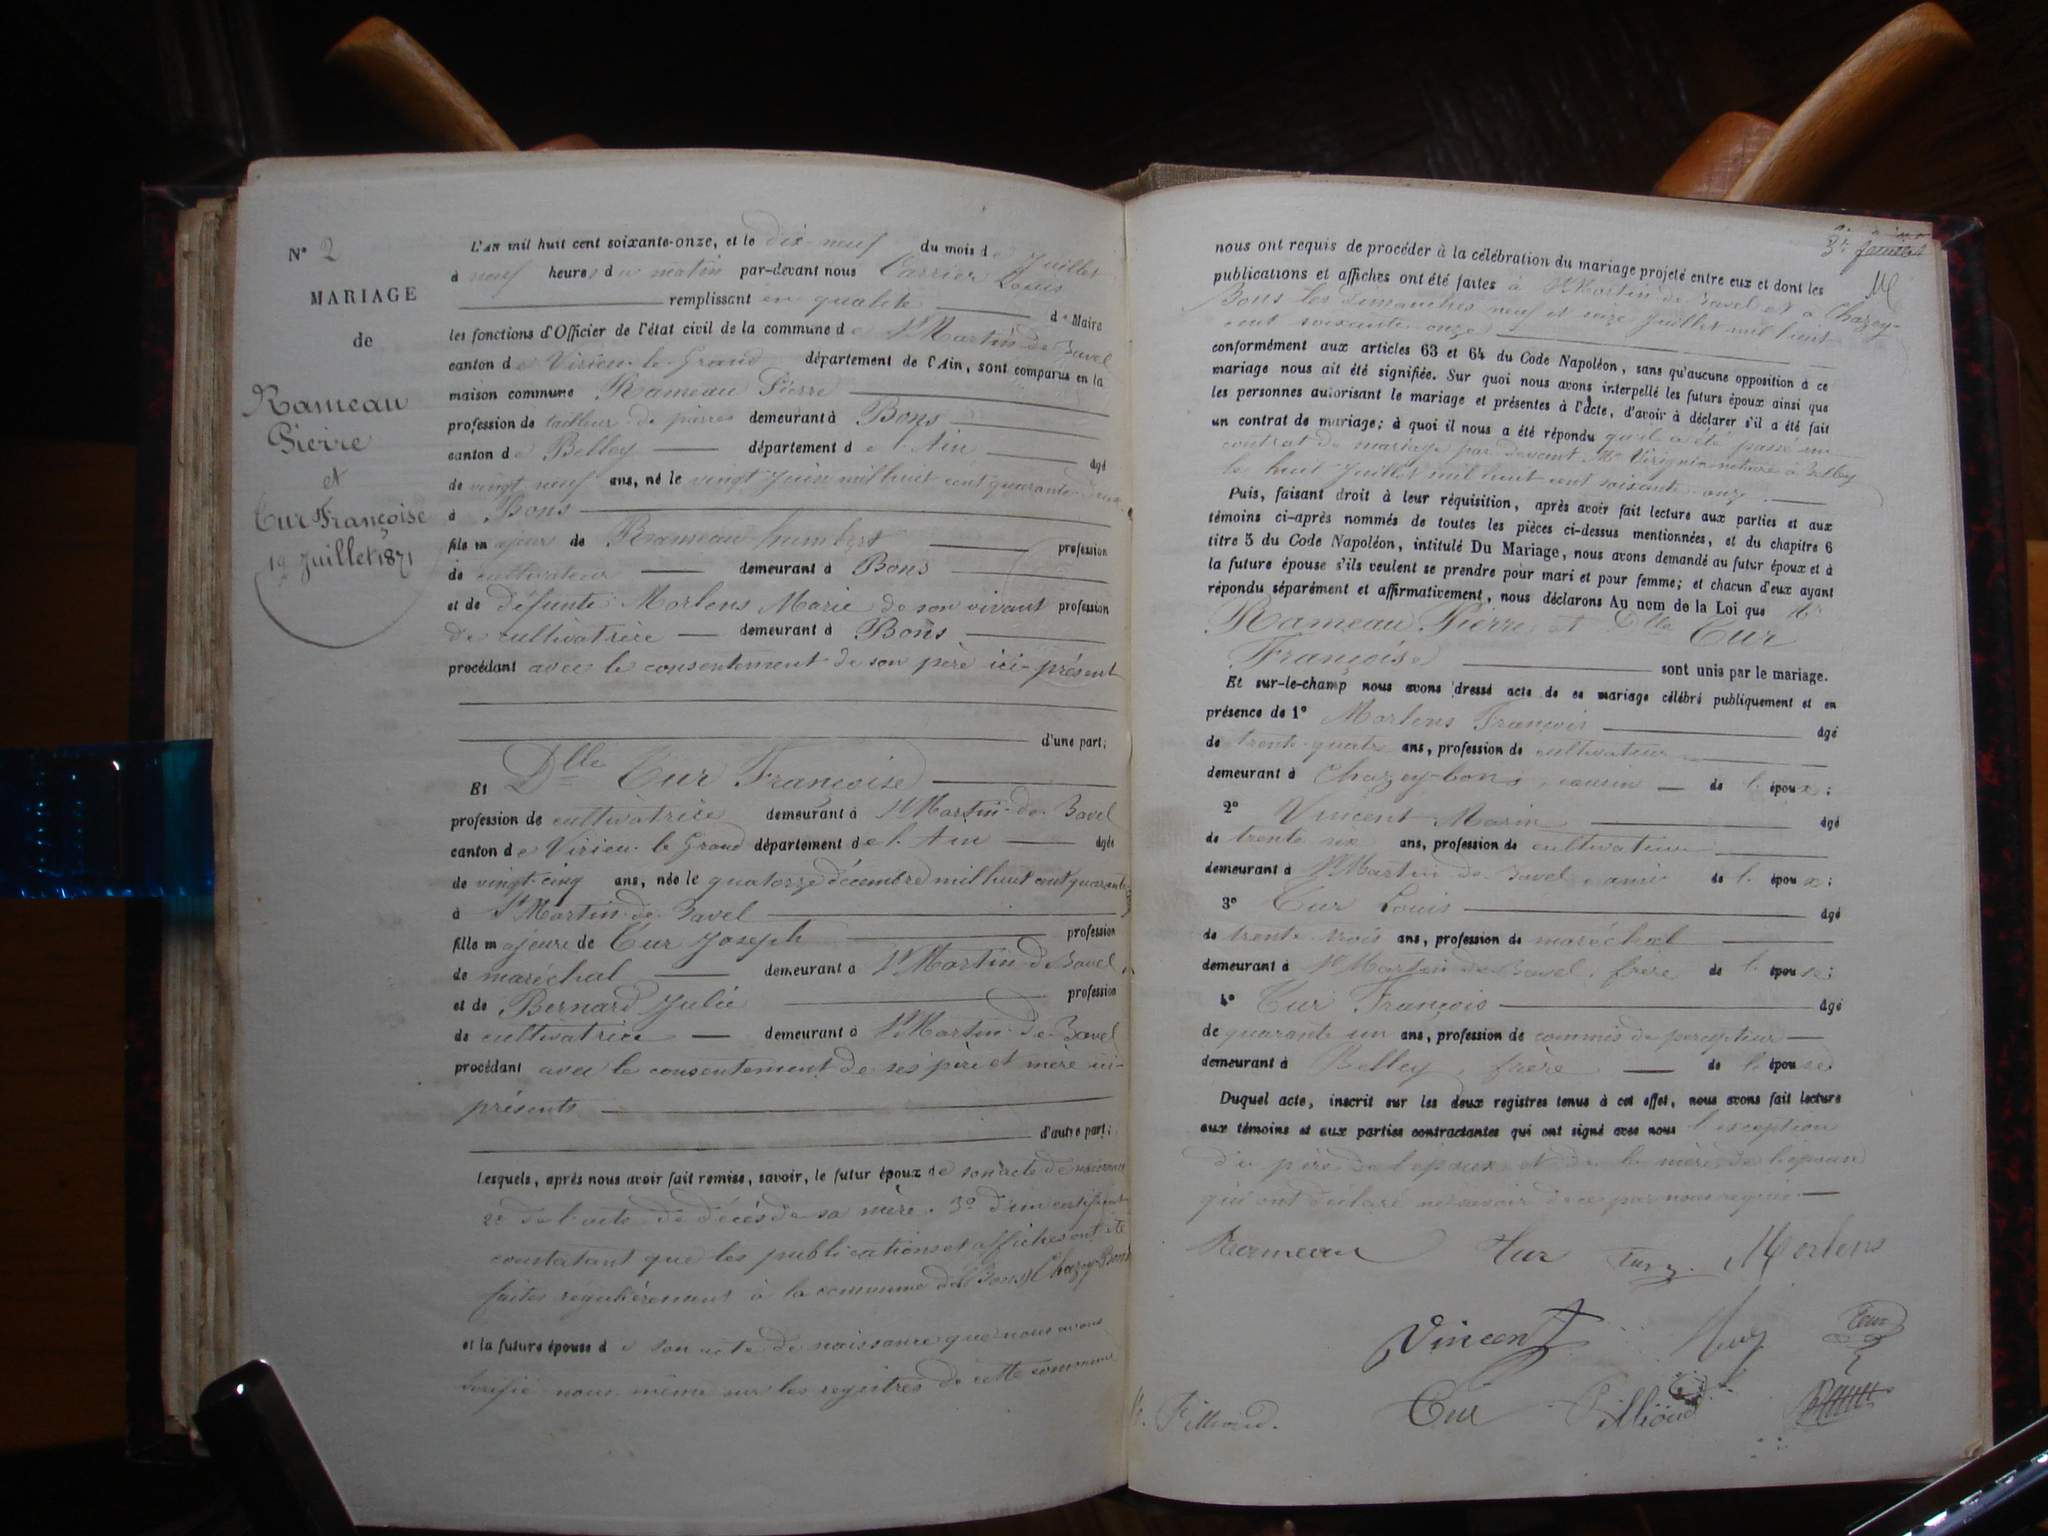 N° 2
MARIAGE
de
Rameau
Pierre
et
Cur Françoise
19 Juillet 1871
L'an mil huit cent soixante-onze, et le dix neuf du mois de Juillet
à neuf heures du matin par-devant nous Carrier Louis
remplissant en qualité de Maire
les fonctions d'Officier de l'état civil de la commune de St Martin de Bavel
canton de Virieu-le-Grand département de l'Ain, sont comparus en la
maison commune Rameau Pierre
profession de tailleur de pierres demeurant à Bons
canton de Belley département de l'Ain âgé
de vingt neuf ans, né le vingt Juin mil huit cent quarante deux
à Bons
fils majeur de Rameau humbert profession
de cultivateur demeurant à Bons
et de défunte Morlens Marie de son vivant profession
de cultivatrice demeurant à Bons
procédant avec le consentement de son père ici-présent
d'une part;
Et Dlle Cur Françoise
profession de cultivatrice demeurant à St Martin-de-Bavel
canton de Virieu-le-Grand département de l'Ain âgée
de vingt-cinq ans, née le quatorze décembre mil huit cent quarante
à St Martin-de-Bavel
fille majeure de Cur Joseph profession
de maréchal demeurant à St Martin-de-Bavel
et de Bernard Julie profession
de cultivatrice demeurant à St Martin-de-Bavel
procédant avec le consentement de ses père et mère ici-
présents
d'autre part;
Lesquels, après nous avoir fait remise, savoir, le futur époux de son acte de naissance
2° de l'acte de décès de sa mère. 3° d'un certificat
constatant que les publications et affiches ont été
faites régulièrement à la commune de Chazey-Bons
et la future épouse de son acte de naissance que nous avons
vérifié nous même sur les registres de cette commune
nous ont requis de procéder à la célébration du mariage projeté entre eux et dont les
publications et affiches ont été faites à St Martin-de-Bavel et à Chazey-
Bons les dimanches neuf et seize Juillet mil huit
cent soixante-onze
conformément aux articles 63 et 64 du Code Napoléon, sans qu'aucune opposition à ce
mariage nous ait été signifiée. Sur quoi nous avons interpellé les futurs époux ainsi que
les personnes autorisant le mariage et présentes à l'acte, d'avoir à déclarer s'il a été fait
un contrat de mariage; à quoi il nous a été répondu qu'il a été passé un
contrat de mariage par devant Me notaire à Belley
le huit Juillet mil huit cent soixante-onze.
Puis, faisant droit à leur réquisition, après avoir fait lecture aux parties et aux
témoins ci-après nommés de toutes les pièces ci-dessus mentionnées, et du chapitre 6
titre 5 du Code Napoléon, intitulé Du Mariage, nous avons demandé au futur époux et à
la future épouse s'ils veulent se prendre pour mari et pour femme; et chacun d'eux ayant
répondu séparément et affirmativement, nous déclarons Au nom de la Loi que Mr
Rameau Pierre et Dlle Cur
Françoise sont unis par le mariage.
Et sur-le-champ nous avons dressé acte de ce mariage célébré publiquement et en
présence de 1° Morlens François âgé
de trente-quatre ans, profession de cultivateur
demeurant à Chazey-bons, cousin de l'époux;
2° Vincent Marin âgé
de trente six ans, profession de cultivateur
demeurant à St Martin de Bavel, ami de l'époux;
3° Cur Louis âgé
de trente trois ans, profession de maréchal
demeurant à St Martin de Bavel, frère de l'épouse;
4° Cur François âgé
de quarante un ans, profession de commis de percepteur
demeurant à Belley, frère de l'épouse
Duquel acte, inscrit sur les deux registres tenus à cet effet, nous avons fait lecture
aux témoins et aux parties contractantes qui ont signé avec nous l'exception
du père de l'époux et de la mère de l'épouse
qui ont déclaré ne savoir de ce par nous requis.
Rameau Cur Cur Morlens
Vincent Cur
Cur Pillioud